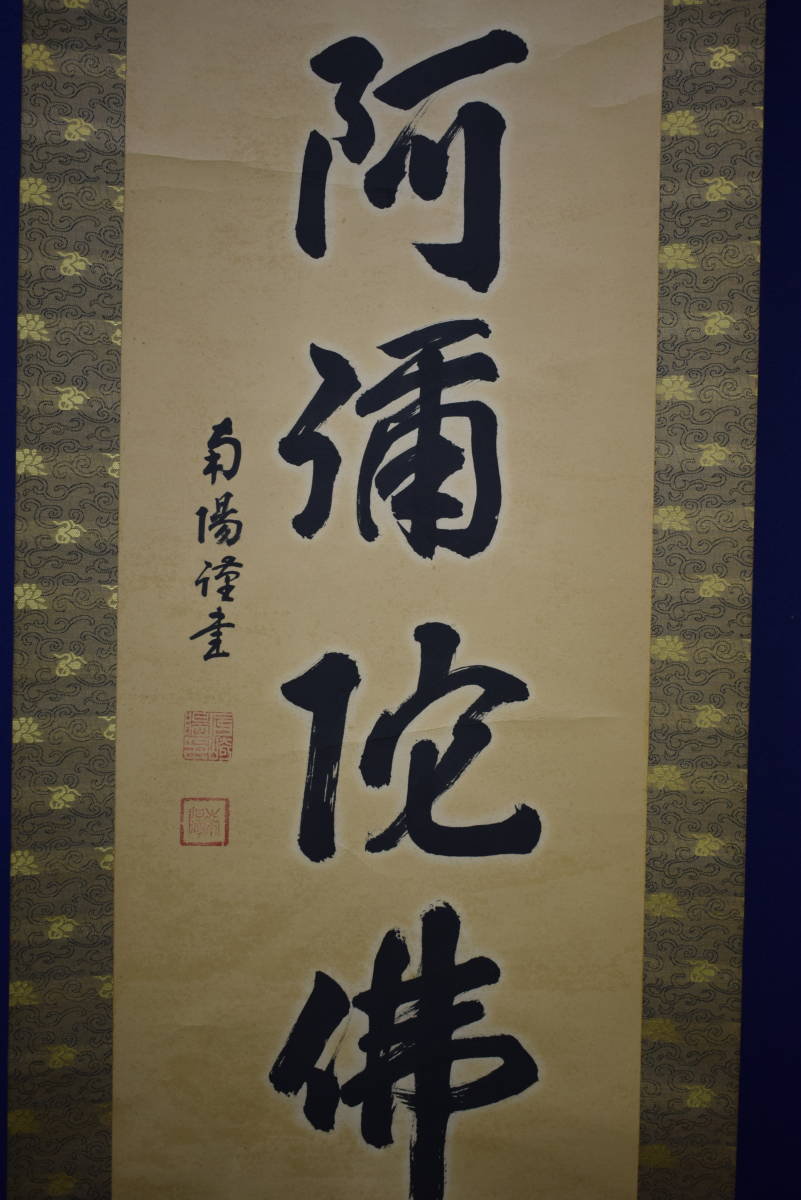 阿彌陀佛
南陽謹書